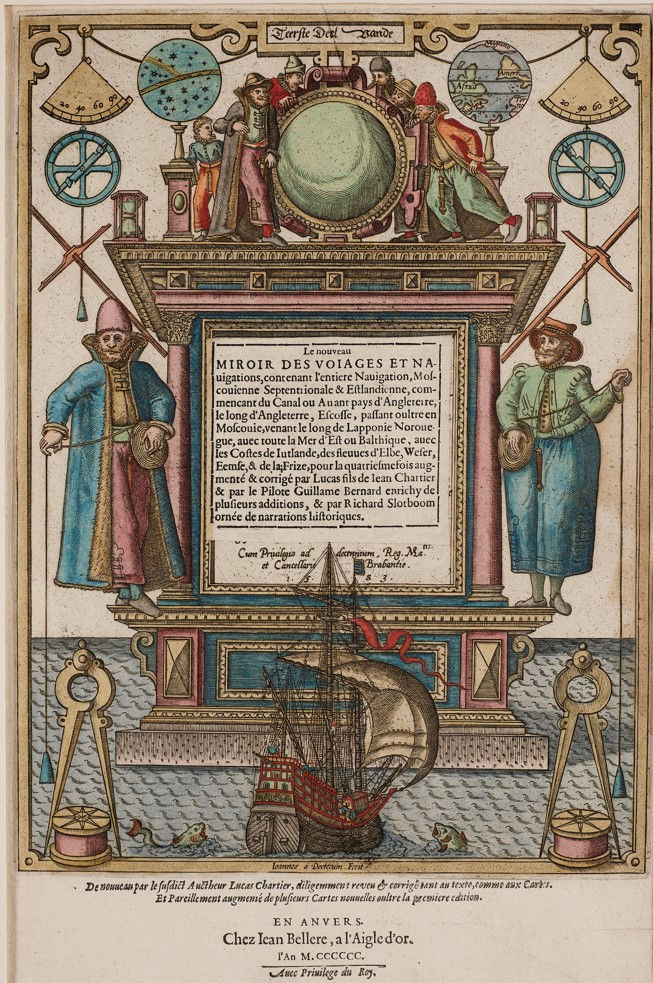 Teerste Deel Vande
20 40 60 90
20 40 60 90
Africa
Ameri
Le nouveau
MIROIR DES VOIAGES ET NA-
uigations, contenant l'entiere Nauigation, Mos-
couienne Septentrionale & Estlandienne, com-
mençant du Canal ou Auant pays d'Angleterre,
le long d'Angleterre, Escosse, passant oultre en
Moscouie, venant le long de Lapponie Noroue-
gue, auec toute la Mer d'Est ou Balthique, auec
les Costes de Iutlande, des fleuues d'Elbe, Weser,
Eemse, & de la Frize, pour la quatriesme fois aug-
menté & corrigé par Lucas fils de Iean Chartier
& par le Pilote Guillame Bernard enrichy de
plusieurs additions, & par Richard Slotboom
ornée de narrations historiques.
Cum Priuilegio ad decennium, Reg. Ma.tis
et Cancellarie Brabantie.
1. 5. 8 3.
Ioannes a Doetecum. Fecit
De nouueau par le susdict Auctheur Lucas Chartier, diligemment reveu & corrigé tant au texte, comme aux Cartes.
Et Pareillement augmenté de plusieurs Cartes nouuelles oultre la premiere edition.
EN ANVERS.
Chez Iean Bellere, a l'Aigle d'or.
l'An M. CCCCCC.
Auec Priuilege du Roy.